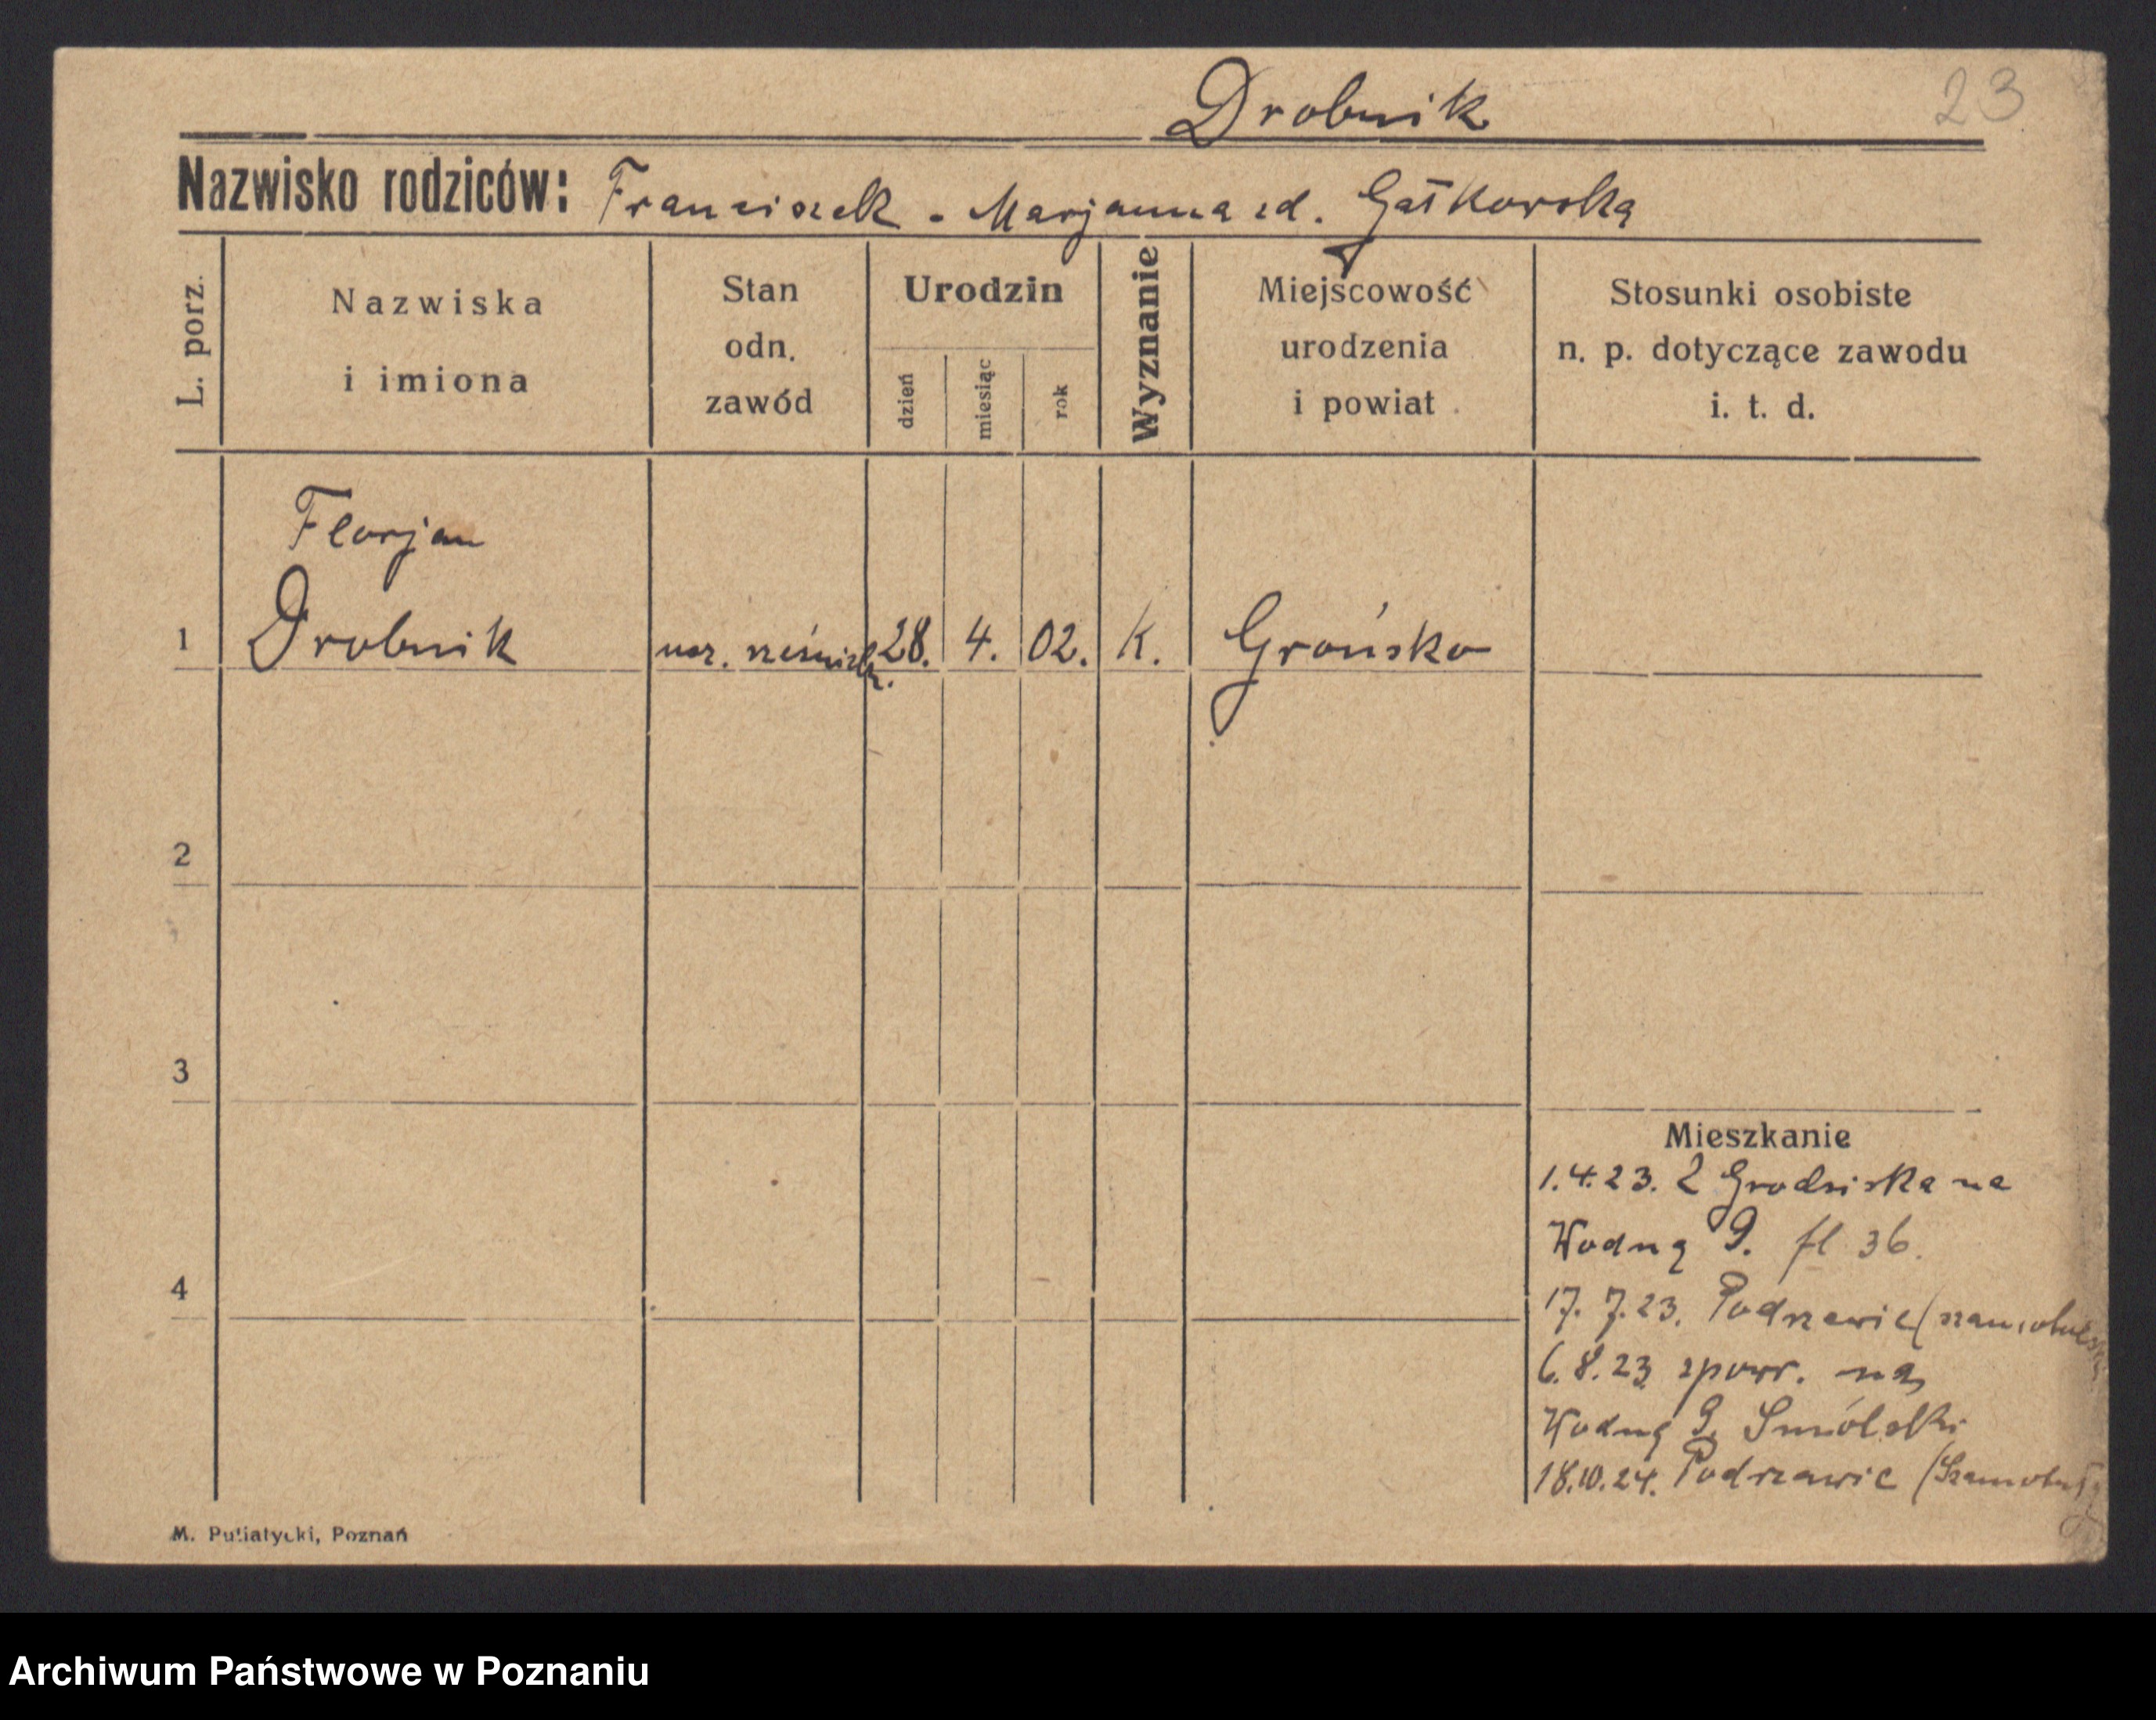 Drobnik
23
Nazwisko rodziców: Franciszek - Marjanna zd. Gałkowska
L. porz.
Nazwiska
i imiona
Stan
odn.
zawód
Urodzin
dzień
miesiąc
rok
Wyznanie
Miejscowość
urodzenia
i powiat
Stosunki osobiste
n. p. dotyczące zawodu
i. t. d.
Florjan
1 Drobnik ucz. rzeźnick. 28. 4. 02. K. Grońsko
2
3
Mieszkanie
1.4.23. Z Grodziska na
Wodną 9. fl 36.
4
17. 7.23. Podrzewie (szamotulski
6.8.23 zpowr. na
Wodną 9. Smólski
18.10.24. Podrzewie (Szamotuły
M. Putiatycki, Poznań
Archiwum Państwowe w Poznaniu